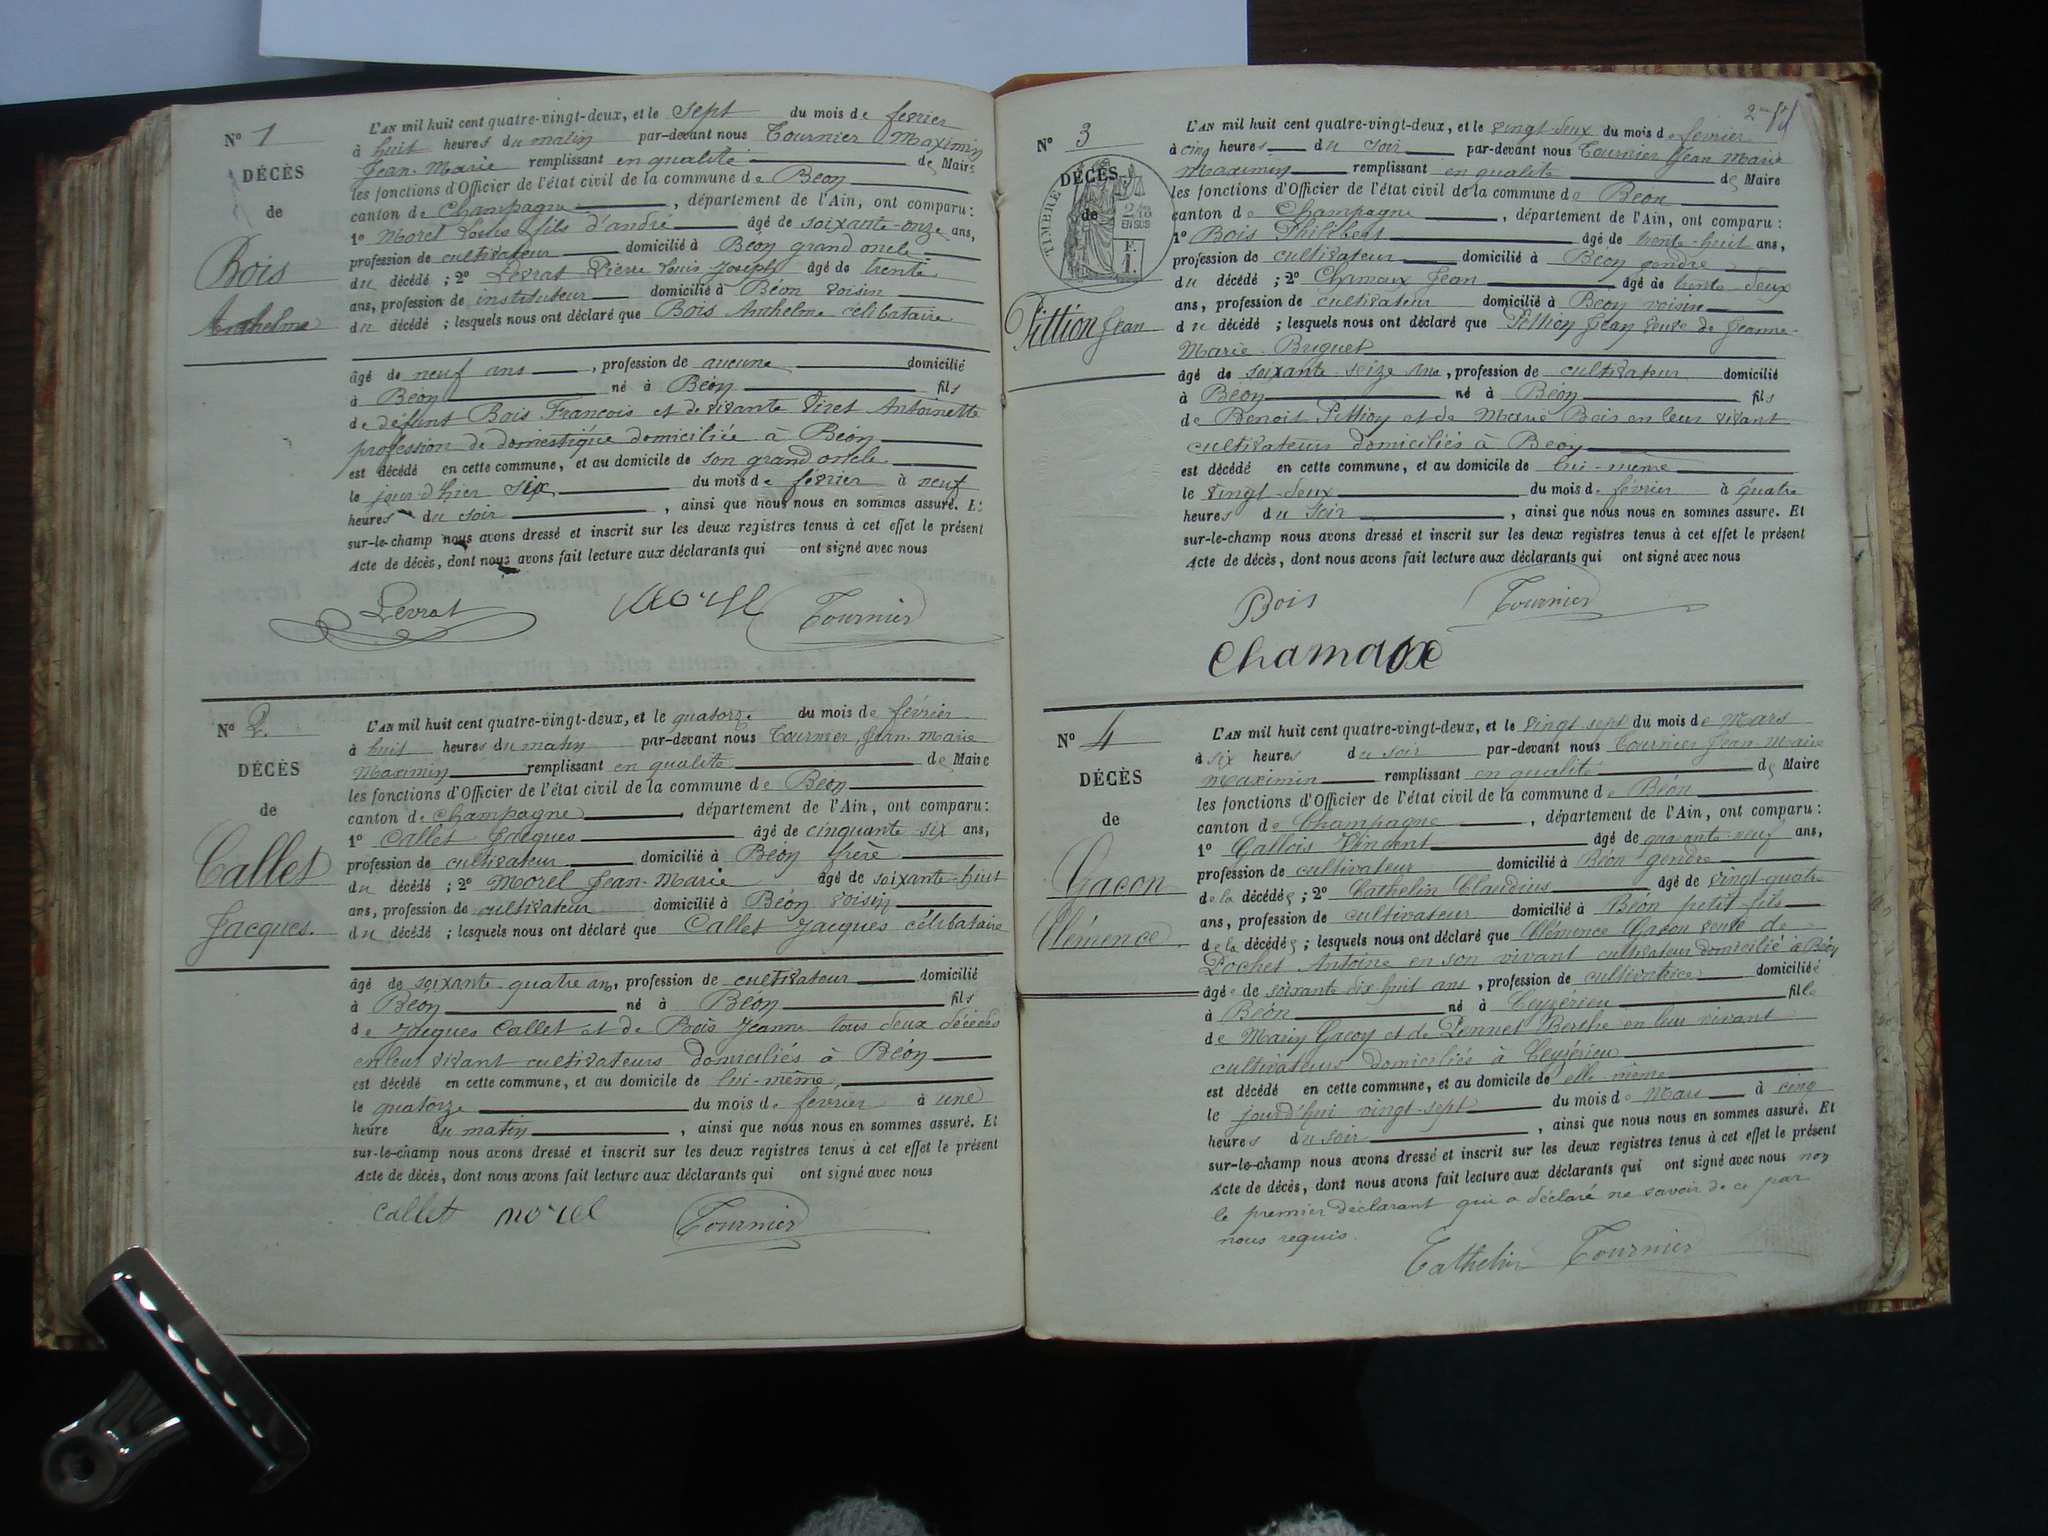 N° 1
DÉCÈS
de
Bois
Anthelme
L'AN mil huit cent quatre-vingt-deux, et le sept du mois de fevrier
à huit heures du matin par-devant nous Tournier Maximin
Jean-Marie remplissant en qualité de Maire
les fonctions d'Officier de l'état civil de la commune de Béon
canton de Champagne, département de l'Ain, ont comparu:
1° Morel Louis fils d'andré âgé de soixante-onze ans,
profession de cultivateur domicilié à Béon grand oncle
du décédé ; 2° Levrat Pierre Louis Joseph âgé de trente
ans, profession de instituteur domicilié à Béon voisin
du décédé ; lesquels nous ont déclaré que Bois Anthelme célibataire
âgé de neuf ans, profession de aucune domicilié
à Béon né à Béon fils
de défunt Bois François et de vivante Viret Antoinette
profession de domestique domiciliée à Béon
est décédé en cette commune, et au domicile de son grand oncle
le jour d'hier six du mois de février à neuf
heures du soir, ainsi que nous nous en sommes assuré. Et
sur-le-champ nous avons dressé et inscrit sur les deux registres tenus à cet effet le présent
Acte de décès, dont nous avons fait lecture aux déclarants qui ont signé avec nous
Levrat Morel Tournier
N° 2
DÉCÈS
de
Callet
Jacques.
L'AN mil huit cent quatre-vingt-deux, et le quatorze du mois de février
à huit heures du matin par-devant nous Tournier Jean-Marie
Maximin remplissant en qualité de Maire
les fonctions d'Officier de l'état civil de la commune de Béon
canton de Champagne, département de l'Ain, ont comparu:
1° Callet Jacques âgé de cinquante-six ans,
profession de cultivateur domicilié à Béon frère
du décédé ; 2° Morel Jean-Marie âgé de soixante-huit
ans, profession de cultivateur domicilié à Béon voisin
du décédé ; lesquels nous ont déclaré que Callet Jacques célibataire
âgé de soixante quatre ans, profession de cultivateur domicilié
à Béon né à Béon fils
de Jacques Callet et de Bois Jeanne tous deux décédés
en leur vivant cultivateurs domiciliés à Béon
est décédé en cette commune, et au domicile de lui-même,
le quatorze du mois de fevrier à une
heure du matin, ainsi que nous nous en sommes assuré. Et
sur-le-champ nous avons dressé et inscrit sur les deux registres tenus à cet effet le présent
Acte de décès, dont nous avons fait lecture aux déclarants qui ont signé avec nous
Callet morel Tournier
N° 3
DÉCÈS
de
TIMBRE
2/10
EN SUS
F.
1.
Pittion Jean
L'AN mil huit cent quatre-vingt-deux, et le vingt-deux du mois de fevrier
à cinq heures du soir par-devant nous Tournier Jean Marie
Maximin remplissant en qualité de Maire
les fonctions d'Officier de l'état civil de la commune de Béon
canton de Champagne, département de l'Ain, ont comparu:
1° Bois Philibert âgé de trente-huit ans,
profession de cultivateur domicilié à Béon gendre
du décédé ; 2° Chamoux Jean âgé de trente-deux
ans, profession de cultivateur domicilié à Béon voisin
du décédé ; lesquels nous ont déclaré que Pittion Jean veuf de Jeanne-
Marie Buguet
âgé de soixante-seize ans, profession de cultivateur domicilié
à Béon né à Béon fils
de Benoit Pittion et de Marie Bois en leur vivant
cultivateurs domiciliés à Béon
est décédé en cette commune, et au domicile de lui-même
le vingt-deux du mois de février à quatre
heures du soir, ainsi que nous nous en sommes assuré. Et
sur-le-champ nous avons dressé et inscrit sur les deux registres tenus à cet effet le présent
Acte de décès, dont nous avons fait lecture aux déclarants qui ont signé avec nous
Bois Tournier
Chamoux
N° 4
DÉCÈS
de
Gacon
Clémence
L'AN mil huit cent quatre-vingt-deux, et le vingt-sept du mois de Mars
à six heures du soir par-devant nous Tournier Jean-Marie
Maximin remplissant en qualité de Maire
les fonctions d'Officier de l'état civil de la commune de Béon
canton de Champagne, département de l'Ain, ont comparu:
1° Gallois Vincent âgé de quarante-neuf ans,
profession de cultivateur domicilié à Béon gendre
de la décédée ; 2° Cathelin Claudius âgé de vingt-quatre
ans, profession de cultivateur domicilié à Béon petit-fils
de la décédée ; lesquels nous ont déclaré que Clémence Gacon veuve de
Pochet Antoine en son vivant cultivateur domicilié à Béon
âgée de soixante dix huit ans, profession de cultivatrice domiciliée
à Béon né à Ceyzérieu fille
de Marin Gacon et de Pennet Berthe en leur vivant
cultivateurs domiciliés à Ceyzérieu
est décédé en cette commune, et au domicile de elle-même
le jourd'hui vingt-sept du mois de Mars à cinq
heures du soir, ainsi que nous nous en sommes assuré. Et
sur-le-champ nous avons dressé et inscrit sur les deux registres tenus à cet effet le présent
Acte de décès, dont nous avons fait lecture aux déclarants qui ont signé avec nous non
le premier déclarant qui a déclaré ne savoir de ce par
nous requis.
Cathelin Tournier